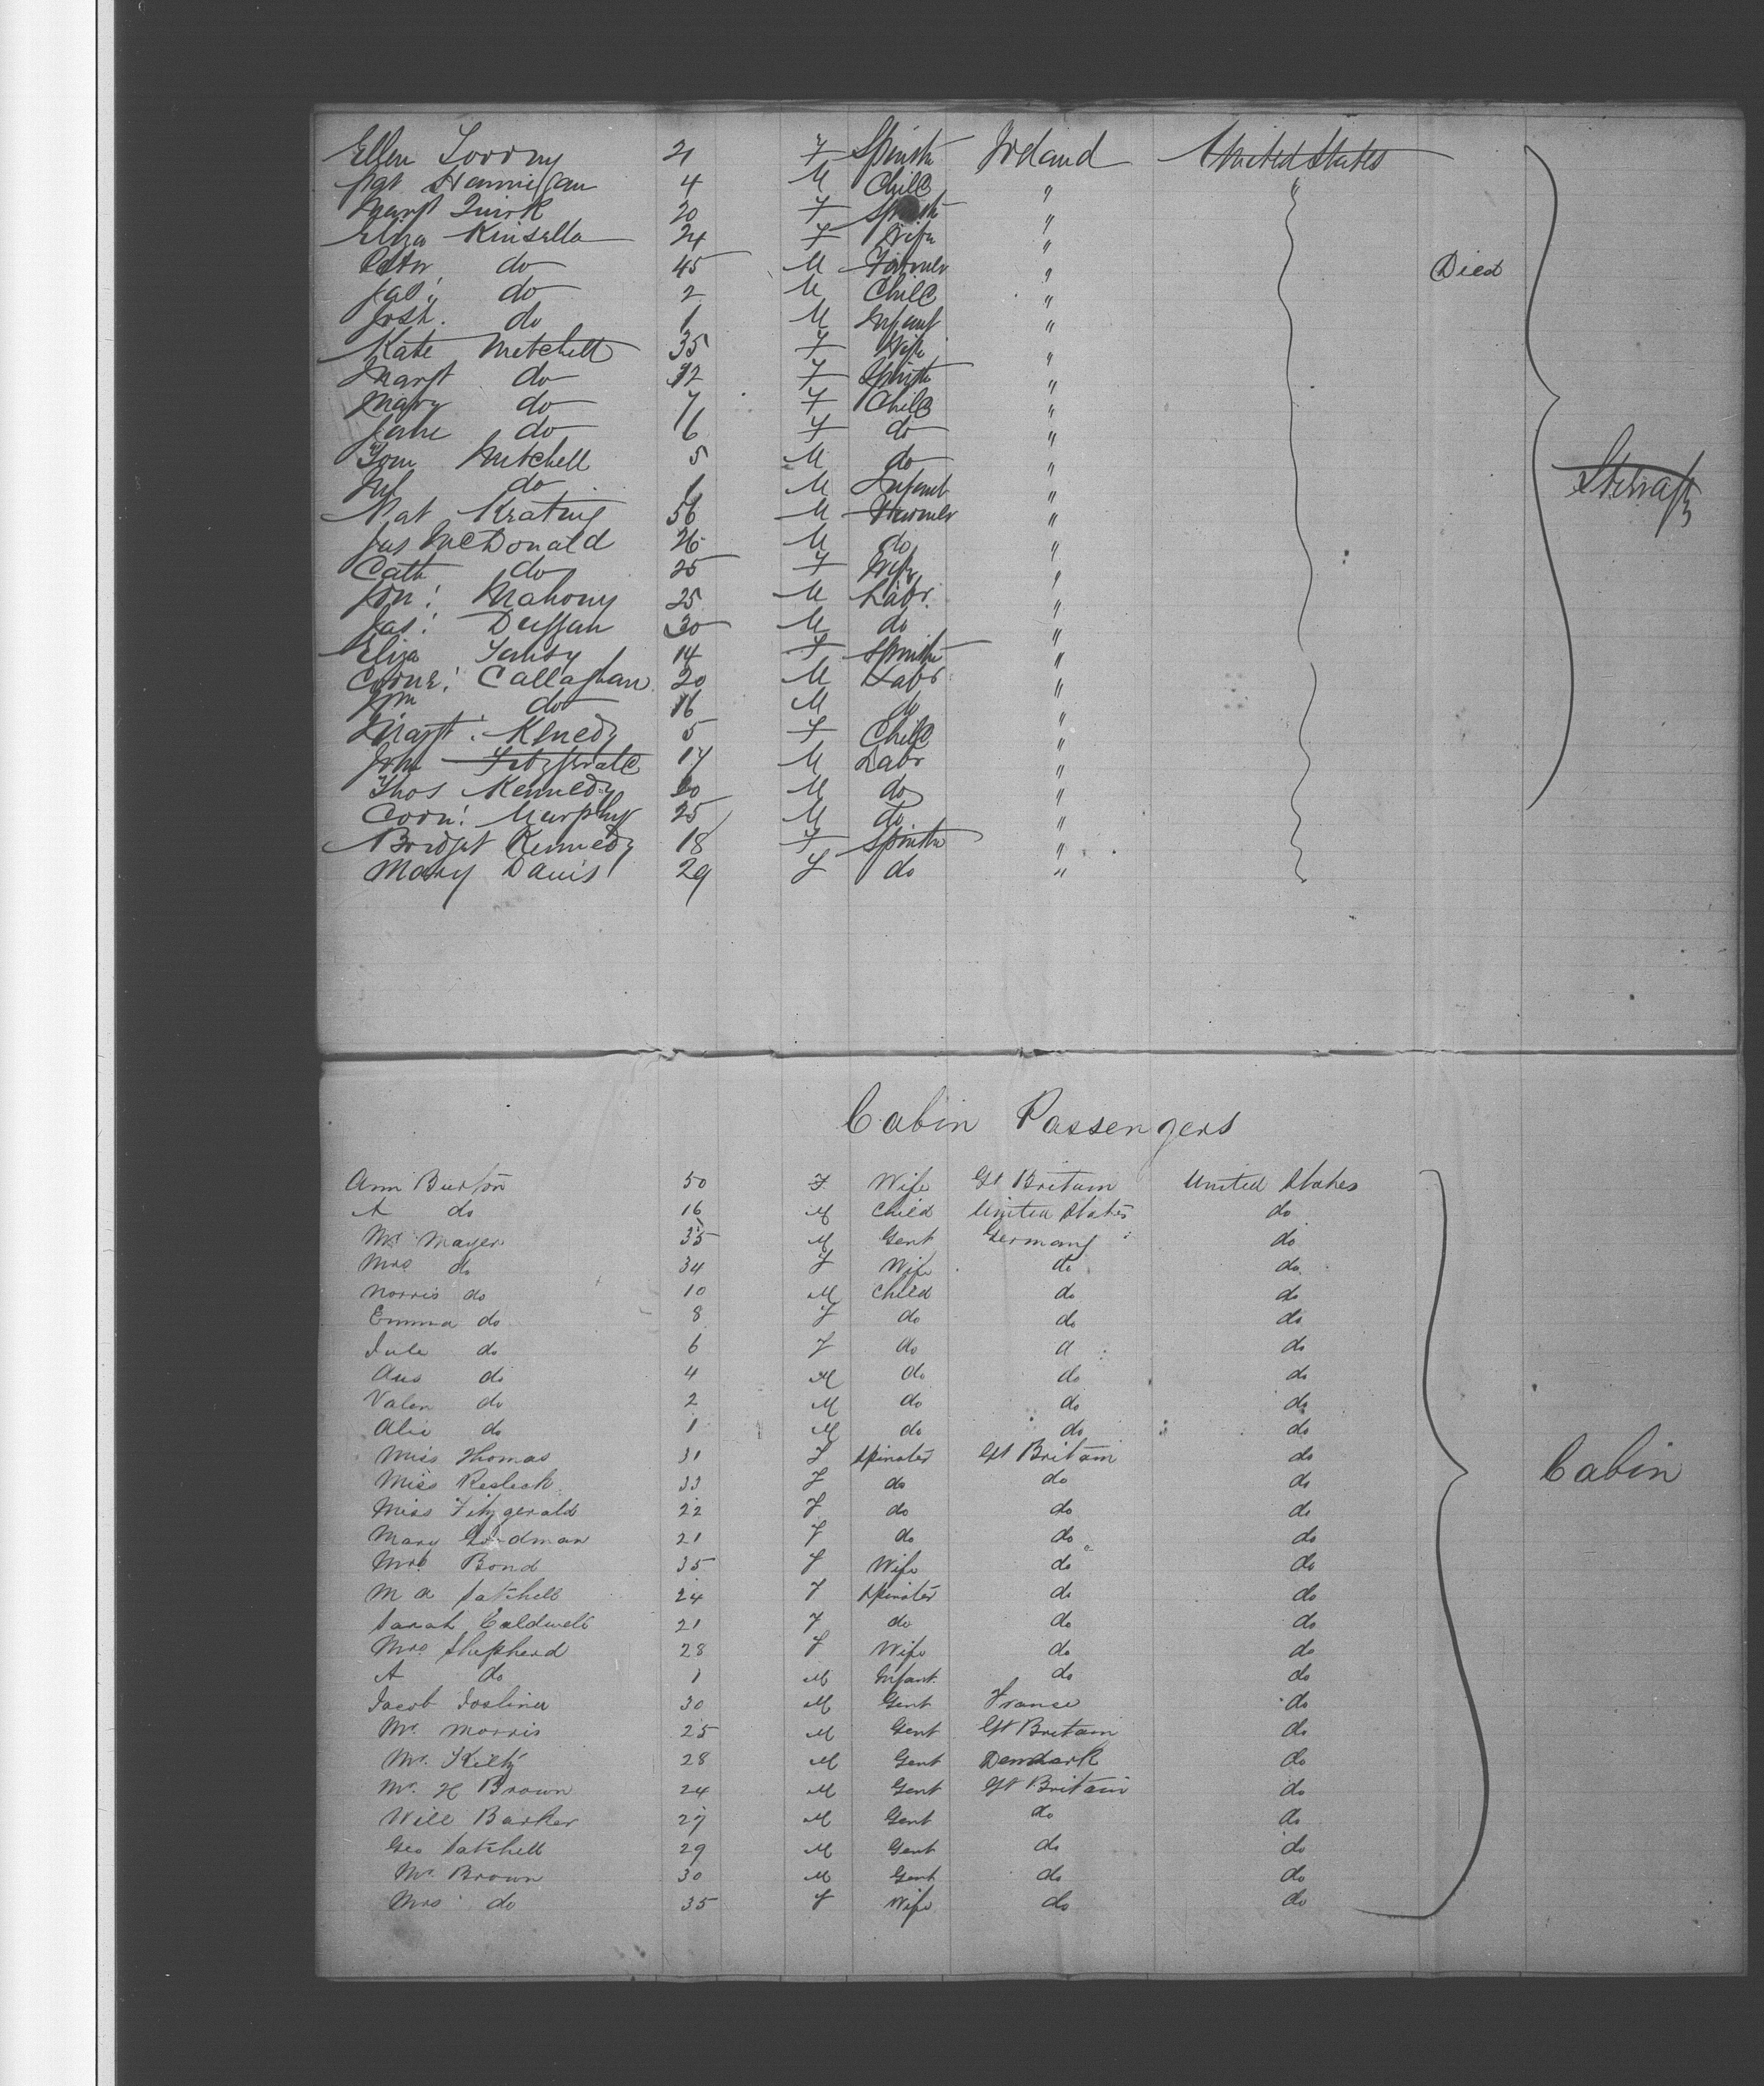 Ellen 21 F Spinstr Ireland United States
Pat Hannigan 4 M Child " "
Margt Quirk 20 F Spinstr "
Eliza Kinsella 24 F Wife "
Peter do 45 M Farmer " Died
Jas: do 2 M Child "
Josh. do 1 M Infant "
Kate Mitchell 35 F Wife "
Margt do 12 F Spinstr "
Mary do 7 F Child "
Jane do 6 F do "
Tom Mitchell 5 M do "
do 1 M Infant "
Pat Keating 56 M Farmer "
Jas McDonald 26 M do "
Cath do 25 F Wife "
Jon: Mahony 25 M Labr. "
Jas: Duggan 30 M do "
Eliza 14 F Spinstr "
Corne: Callaghan 20 M Labr "
Wm do 16 M do "
Margt: Kenedy 5 F Child "
John Fitzgerald 17 M Labr "
Thos Kennedy 20 M do "
Corn: Murphy 25 M do "
Bridget Kennedy 18 F Spinstr "
Mary Davis 29 F do "
Steerage
Cabin Passengers
Ann Burton 50 F. Wife Gt Britain United States
A do 16 M Child United States do
Mr Mayer 35 M Gent Germany do
Mrs do 34 F Wife do do
Morris do 10 M Child do do
Emma do 8 F do do do
Jule do 6 F do d do
Aus do 4 M do do do
Valen do 2 M do do do
Alic do 1 M do do do
Miss Thomas 31 F Spinster Gt Britain do
Miss 33 F do do do
Miss Fitzgerald 22 F do do do
Mary Goodman 21 F do do do
Mrs Bond 35 F Wife do do
M A Satchell 24 F Spinster do do
Sarah Caldwell 21 F do do do
Mrs Shepherd 28 F Wife do do
A do 1 M Infant do do
Jacob 30 M Gent France do
Mr. Morris 25 M Gent Gt Britain do
Mr. 28 M Gent Denmark do
Mr. H Brown 24 M Gent Gt Britain do
Will Barker 27 M Gent do do
Geo Satchell 29 M Gent do do
Mr Brown 30 M Gent do do
Mrs do 35 F Wife do do
Cabin